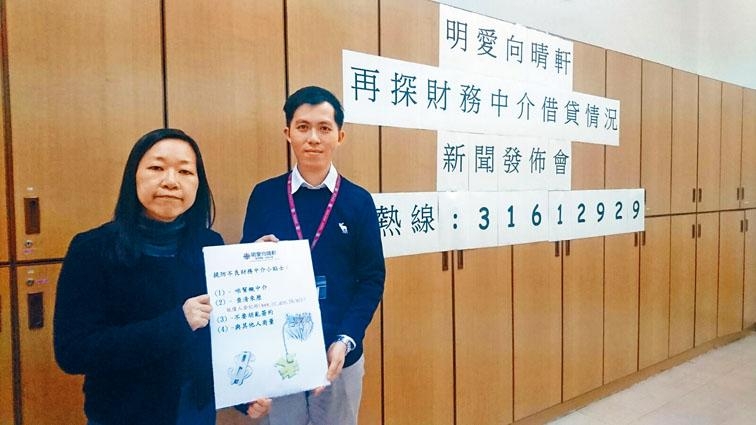 明愛向晴軒
再探財務中介借貸情況
新聞發佈會
熱線:31612929
明愛向晴軒
提防不良財務中介小貼士:
(1)-唔幫襯中介
(2)-查清來歷
(3)-不要胡亂簽約
(4)-與其他人商量